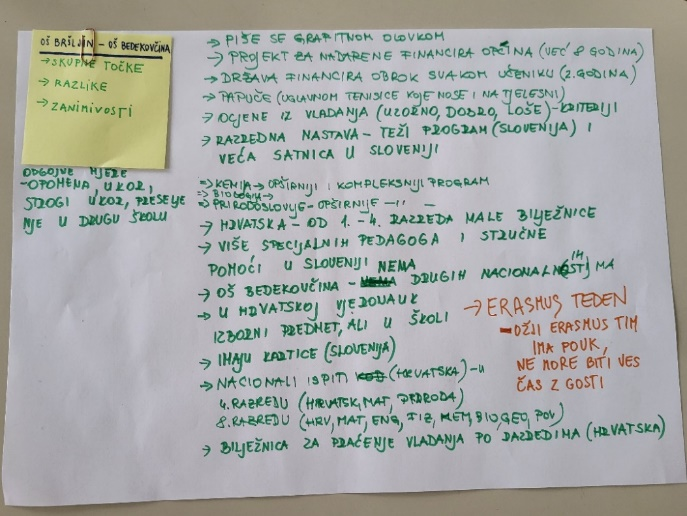 OŠ BRŠLJIN - OŠ BEDEKOVČINA
→ SKUPNE TOČKE
→ RAZLIKE
→ ZANIMIVOSTI
ODGOJNE MJERE
- OPOMENA, UKOR,
STROGI UKOR, PRESELJE
NJE U DRUGU ŠKOLU
→ PIŠE SE GRAFITNOM OLOVKOM
→ PROJEKT ZA NADARENE FINANCIRA OPĆINA (VEĆ 8 GODINA)
→ DRŽAVA FINANCIRA OBROK SVAKOM UČENIKU (2. GODINA)
→ PAPUČE (UGLAVNOM TENISICE KOJE NOSE I NA TJELESNI)
→ OCJENE IZ VLADANJA (UZORNO, DOBRO, LOŠE) - KRITERIJI
→ RAZREDNA NASTAVA - TEŽI PROGRAM (SLOVENIJA) I
VEĆA SATNICA U SLOVENIJI
→ KEMIJA → OPŠIRNIJI I KOMPLEKSNIJI PROGRAM
→ BIOLOGIJA →
→ PRIRODOSLOVJE - OPŠIRNIJE -11-
→ HRVATSKA - OD 1. - 4. RAZREDA MALE BILJEŽNICE
→ VIŠE SPECIJALNIH PEDAGOGA I STRUČNE
POMOĆI U SLOVENIJI
→ OŠ BEDEKOVČINA - NEMA DRUGIH NACIONALNOSTI
→ U HRVATSKOJ VJERONAUK
IZBORNI PREDMET, ALI U ŠKOLI
→ IMAJU KARTICE (SLOVENIJA)
→ NACIONALI ISPITI (HRVATSKA) - U
4. RAZREDU (HRVATSK, MAT, PRIRODA)
8. RAZREDU (HRV, MAT, ENG, FIZ, KEM, BIO, GEO, POV)
→ BILJEŽNICA ZA PRAĆENJE VLADANJA PO RAZREDIMA (HRVATSKA)
→ ERASMUS TEDEN
- OŽJI ERASMUS TIM
IMA POUK,
NE MORE BITI VES
ČAS Z GOSTI